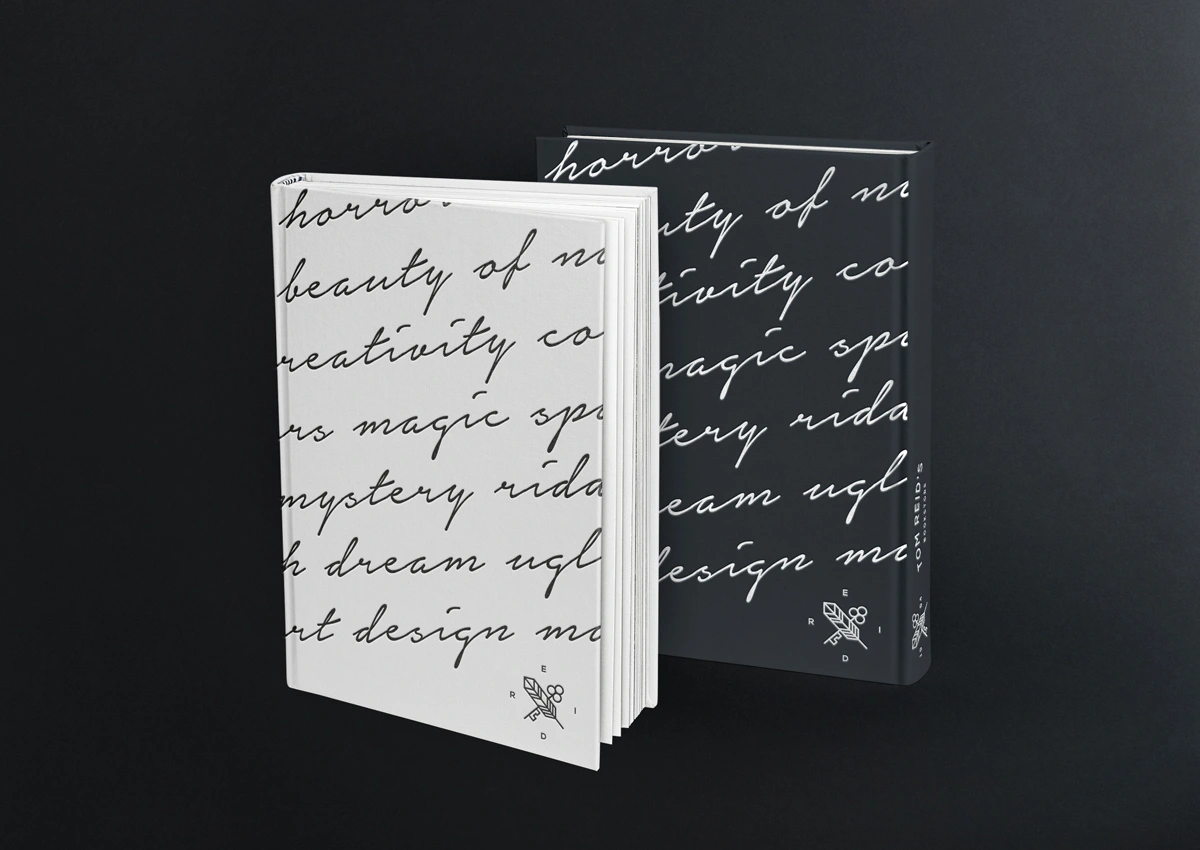 horror
beauty of
creativity co
rs magic spa
mystery rida
h dream ugl
art design mo
R E I D
horror
uty of
tivity co
magic spa
tery rida
eam ugl
design mo
R E I D
TOM REID'S
BOOKSTORE